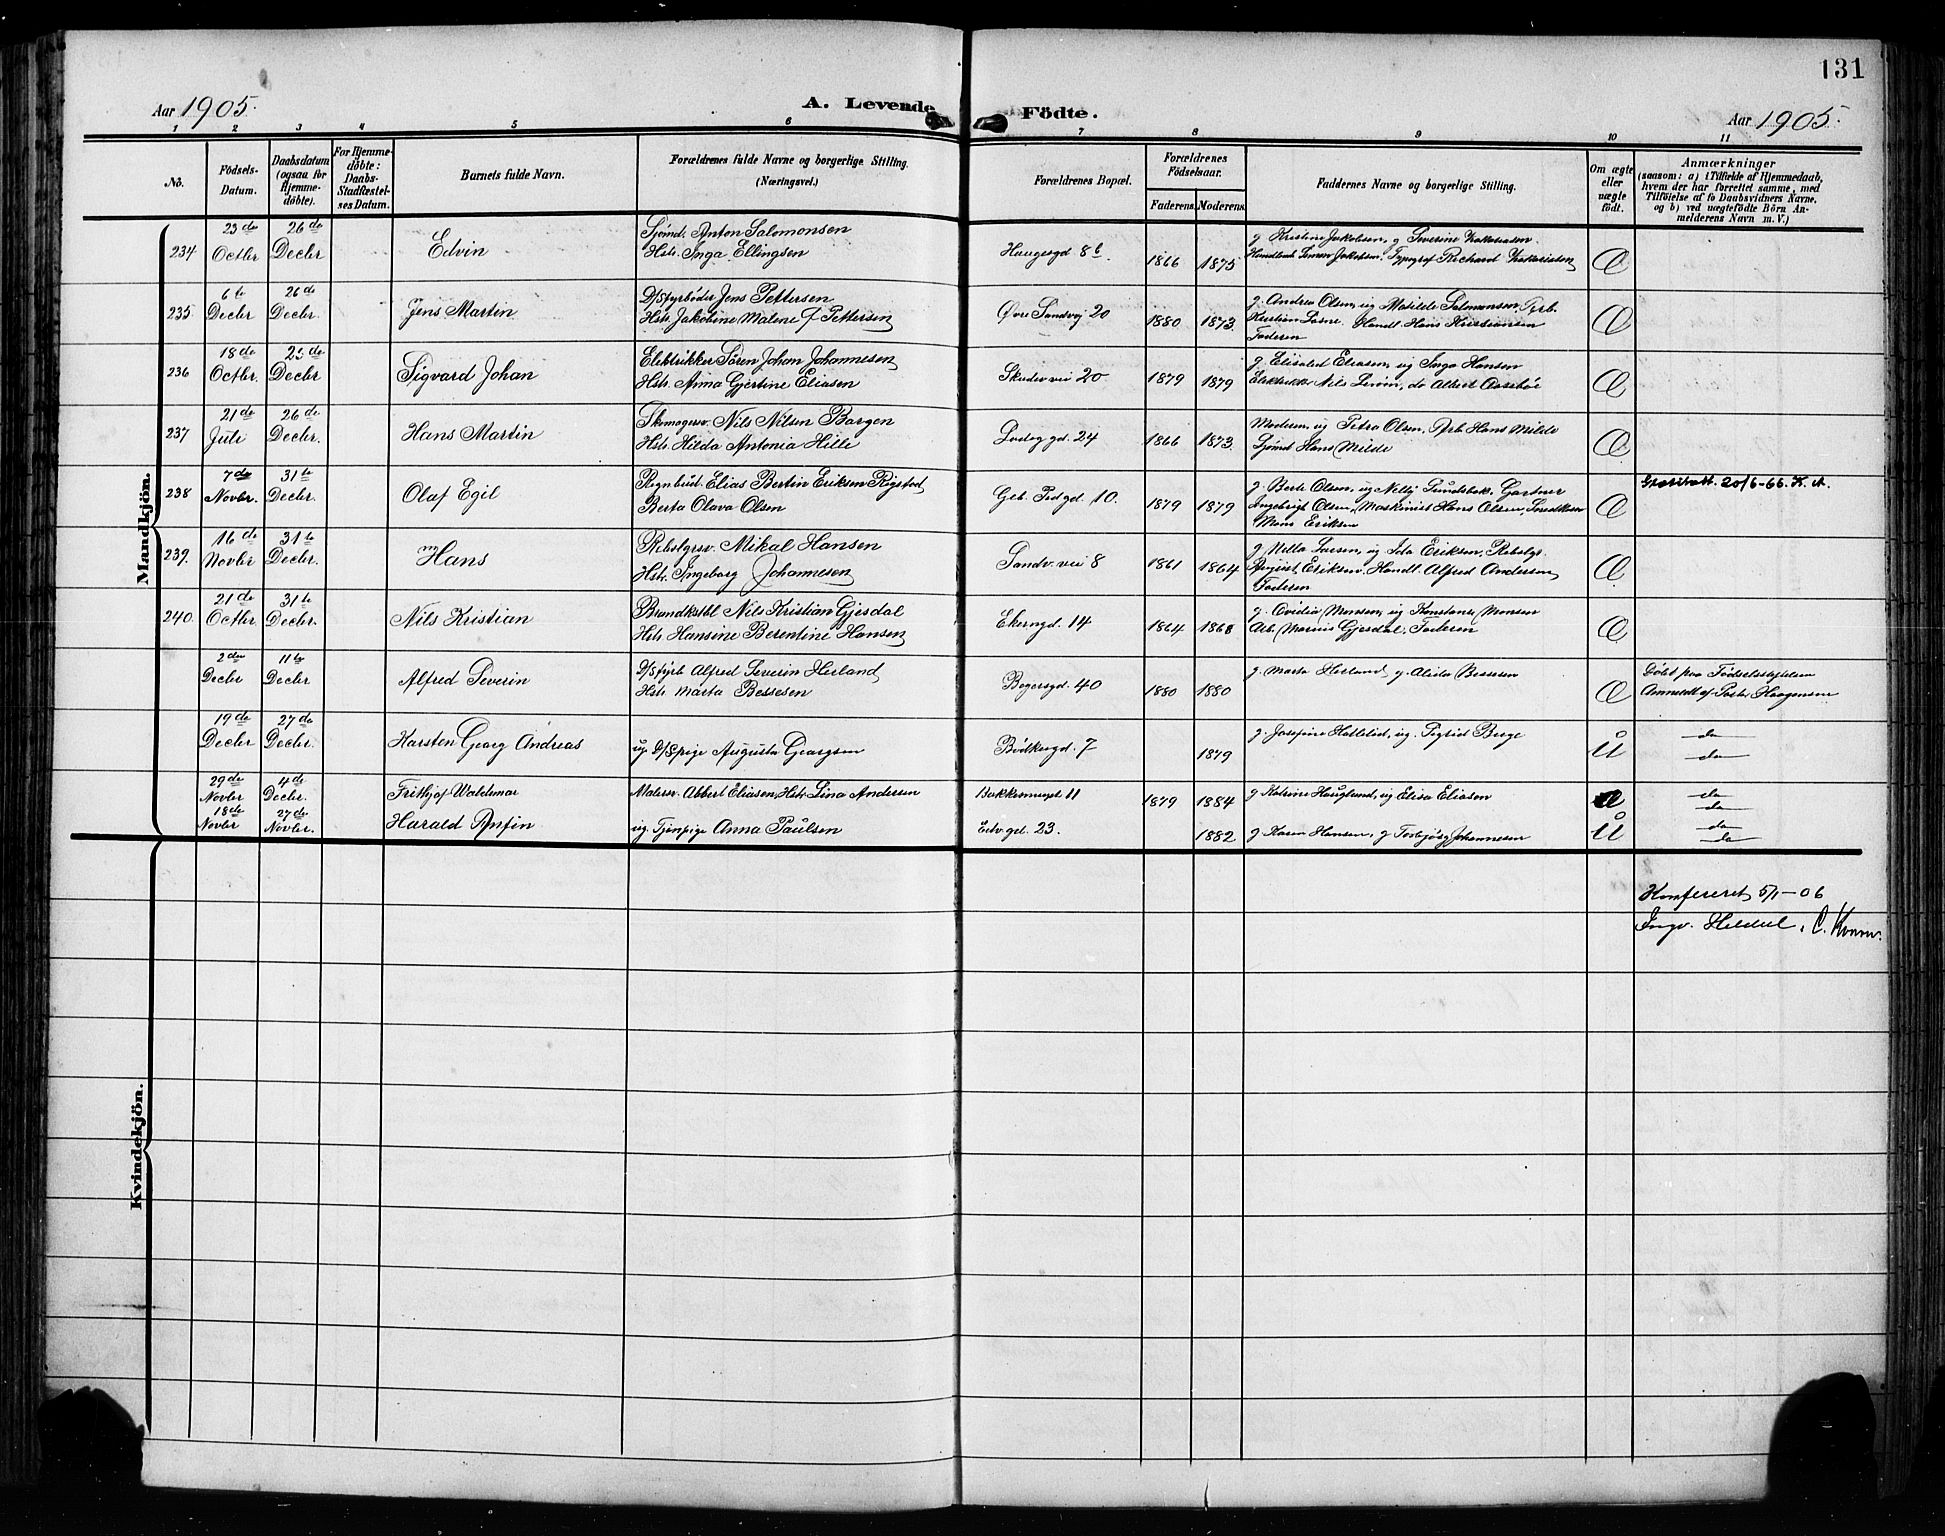 131
Aar 1905.
A. Levende Födte.
Aar 1905.
1 2 3 4 5 6 7 8 9 10 11
No.
Födsels-Datum.
Daabsdatum (ogsaa for Hjemmedöbte).
For Hjemmedöbte: Daabs-Stadfæstelses Datum.
Barnets fulde Navn.
Forældrenes fulde Navne og borgerlige Stilling. (Næringsvei.)
Forældrenes Bopæl.
Forældrenes Födselsaar.
Faderens. Moderens.
Faddernes Navne og borgerlige Stilling.
Om ægte eller uægte födt.
Anmærkninger
(saasom: a) i Tilfælde af Hjemmedaab, hvem der har forrettet samme, med Tilföielse af to Daabsvidners Navne, og b) ved uægtefödte Börn Anmelderens Navn m. V.)
Mandkjön.
234 23de Octbr 26de Decbr Edvin
Sjömd. Anton Salomonsen
Hstr. Inga Ellingsen
Haugesgd 8b 1866 1875
g. Kristine Jakobsen, g Severine Zakariasen
Handelsb. Simon Jakobsen, Typograf Richard Zakariasen
Æ
235 6te Decbr 26de Decbr. Jens Martin
D/Sfyrböder Jens Pettersen
Hstr. Jakobine Malene f Pettersen
Övre Sandvej 20 1880 1873.
g. Andrea Olsen, ug Matilde Salomonsen, Arb.
Kristian Lasne, Handl. Hans Kristiansen
Faderen
Æ
236 18de Octbr. 25de Decbr. Sigvard Johan
Elektrikker Sören Johan Johannesen
Hstr. Anna Gjertine Eliasen
Skudev vei 20 1879 1879
g. Elisabet Eliasen, ug Inga Hansen
Elektrikker Nils Simon, do Albert Aaseböe
Æ
237 21de Juli 26de Decbr. Hans Martin
Skomagersv. Nils Nilsen Bargen
Hstr. Hilda Antonia Hille
Lodsg gd. 24 1866 1873.
Moderen, ug Petra Olsen, Arb. Hans Milde
Sjömd Hans Milde
Æ
238 7de Novbr. 31te Decbr. Olaf Egil
Regnbud. Elias Bertin Eriksen Rystad
Berta Olava Olsen
Geb. Pedgd. 10. 1879 1879
g. Berte Olsen, ug Nelly Sundsbak, Gartner
Ingebrigt Olsen, Maskinist Hans Olsen, Snedker
Mons Eriksen
Æ
20/6-66. K. A.
239. 16de Novbr 31te Decbr. Hans
Rebslgrsv. Mikal Hansen
Hstr. Ingeborg Johannesen
Sandv. vei 8 1861 1864
g. Nilla Larsen, ug Ida Eriksen, Rebslgr.
August Eriksen, Handl. Alfred Andersen,
Faderen
Æ
240. 21de Octbr 31te Decbr. Nils Kristian
Brandkstbl Nils Kristian Gjesdal
Hstr. Hansine Berentine Hansen
Ekerngd. 14 1864 1868
g. Ovidia Monsen, ug Konstance Monsen
Arb. Marius Gjesdal, Faderen
Æ
2den Decbr 11te Decbr Alfred Severin
D/Sfyrb Alfred Severin Herland
Hstr. Marta Bessesen
Bogersgd. 40 1880 1880
g. Marta Herland, g. Alida Bessesen
Æ
Döbt paa Födselsstiftelsen
Anmeldt af Pastor Haagensen
19de Decbr 27de Decbr. Karsten Georg Andreas
ug D/Spige Augusta Georgsen
Bödkergd. 7 1879
g. Josefine Halleland, ug. Sigrid Berge
U
do
do
29de Novbr 4de Decbr. Frithjof Waldemar
Malersv. Albert Eliasen, Hstr. Lina Andersen
Bakkesmuget 11 1879 1884
g Katrine Hauglund, ug Elisa Eliasen
Æ
do
do
18de Novbr 27de Novbr. Harald Anfin
ug. Tjenpige Anna Paulsen
Edv. gd. 23. 1882
g. Karen Hansen, g Torbjörg Johannesen
U
do
do
Kvindekjön.
Konfereret 5/1-06
Ingv. Heldal. C. Kvam